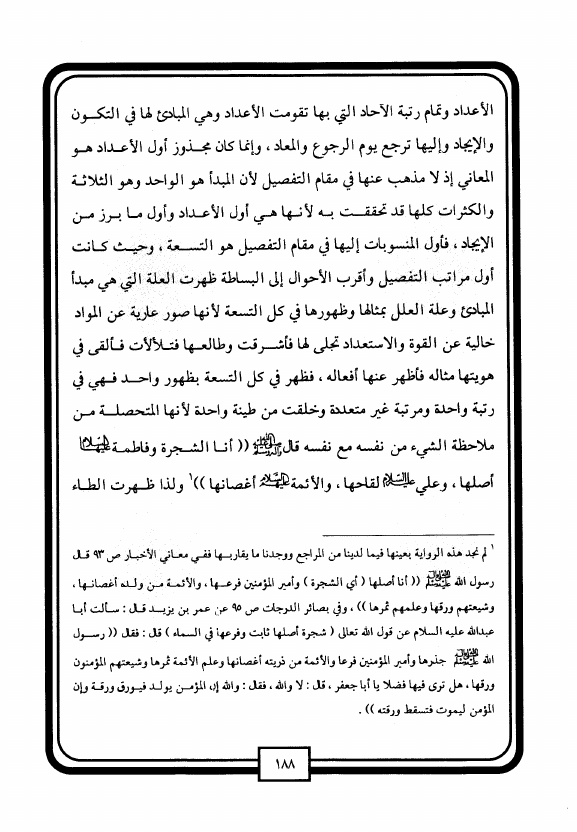 الأعداد وتمام رتبة الآحاد التي بها تقومت الأعداد وهي المبادئ لها في التكون
والإيجاد وإليها ترجع يوم الرجوع والمعاد ، وإنما كان مجذوز أول الأعداد هو
المعاني إذ لا مذهب عنها في مقام التفصيل لأن المبدأ هو الواحد وهو الثلاثة
والكثرات كلها قد تحققت به لأنها هي أول الأعداد وأول ما برز من
الإيجاد ، فأول المنسوبات إليها في مقام التفصيل هو التسعة ، وحيث كانت
أول مراتب التفصيل وأقرب الأحوال إلى البساطة ظهرت العلة التي هي مبدأ
المبادئ وعلة العلل بمثالها وظهورها في كل التسعة لأنها صور عارية عن المواد
خالية عن القوة والاستعداد تجلى لها فأشرقت وطالعها فتلألأت فألقى في
هويتها مثاله فأظهر عنها أفعاله ، فظهر في كل التسعة بظهور واحد فهي في
رتبة واحدة ومرتبة غير متعددة وخلقت من طينة واحدة لأنها المتحصلة من
ملاحظة الشيء من نفسه مع نفسه قال (( أنا الشجرة وفاطمة
أصلها ، وعلي لقاحها ، والأئمة أغصانها ))١ ولذا ظهرت الطاء
١ لم نجد هذه الرواية بعينها فيما لدينا من المراجع ووجدنا ما يقاربها ففي معاني الأخبار ص ٩٣ قال
رسول الله (( أنا أصلها ( أي الشجرة ) وأمير المؤمنين فرعها ، والأئمة من ولده أغصانها ،
وشيعتهم ورقها وعلمهم ثمرها )) ، وفي بصائر الدرجات ص ٩٥ عن عمر بن يزيد قال : سألت أبا
عبدالله عليه السلام عن قول الله تعالى ( شجرة أصلها ثابت وفرعها في السماء ) قال : فقال (( رسول
الله جذرها وأمير المؤمنين فرعا والأئمة من ذريته أغصانها وعلم الأئمة ثمرها وشيعتهم المؤمنون
ورقها ، هل ترى فيها فضلا يا أبا جعفر ، قال : لا والله ، فقال : والله إن المؤمن يولد فيورق ورقة وإن
المؤمن ليموت فتسقط ورقته )) .
١٨٨